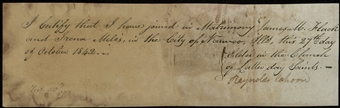 I Certify that I have joined in Matrimony James M. Flack
and Irena Miles, in the City of Nauvoo, Ills, this 27th day
of October 1842.—
Elder in the Church
of Latter day Saints.—
Reynolds Cahoon